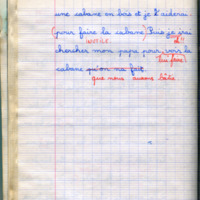 une cabane en bois et je l'aiderai.
(pour faire la cabane) Puis je irai
INUTILE
chercher mon papa pour voir la
cabane qu'on na fait
que nous avons bâtie